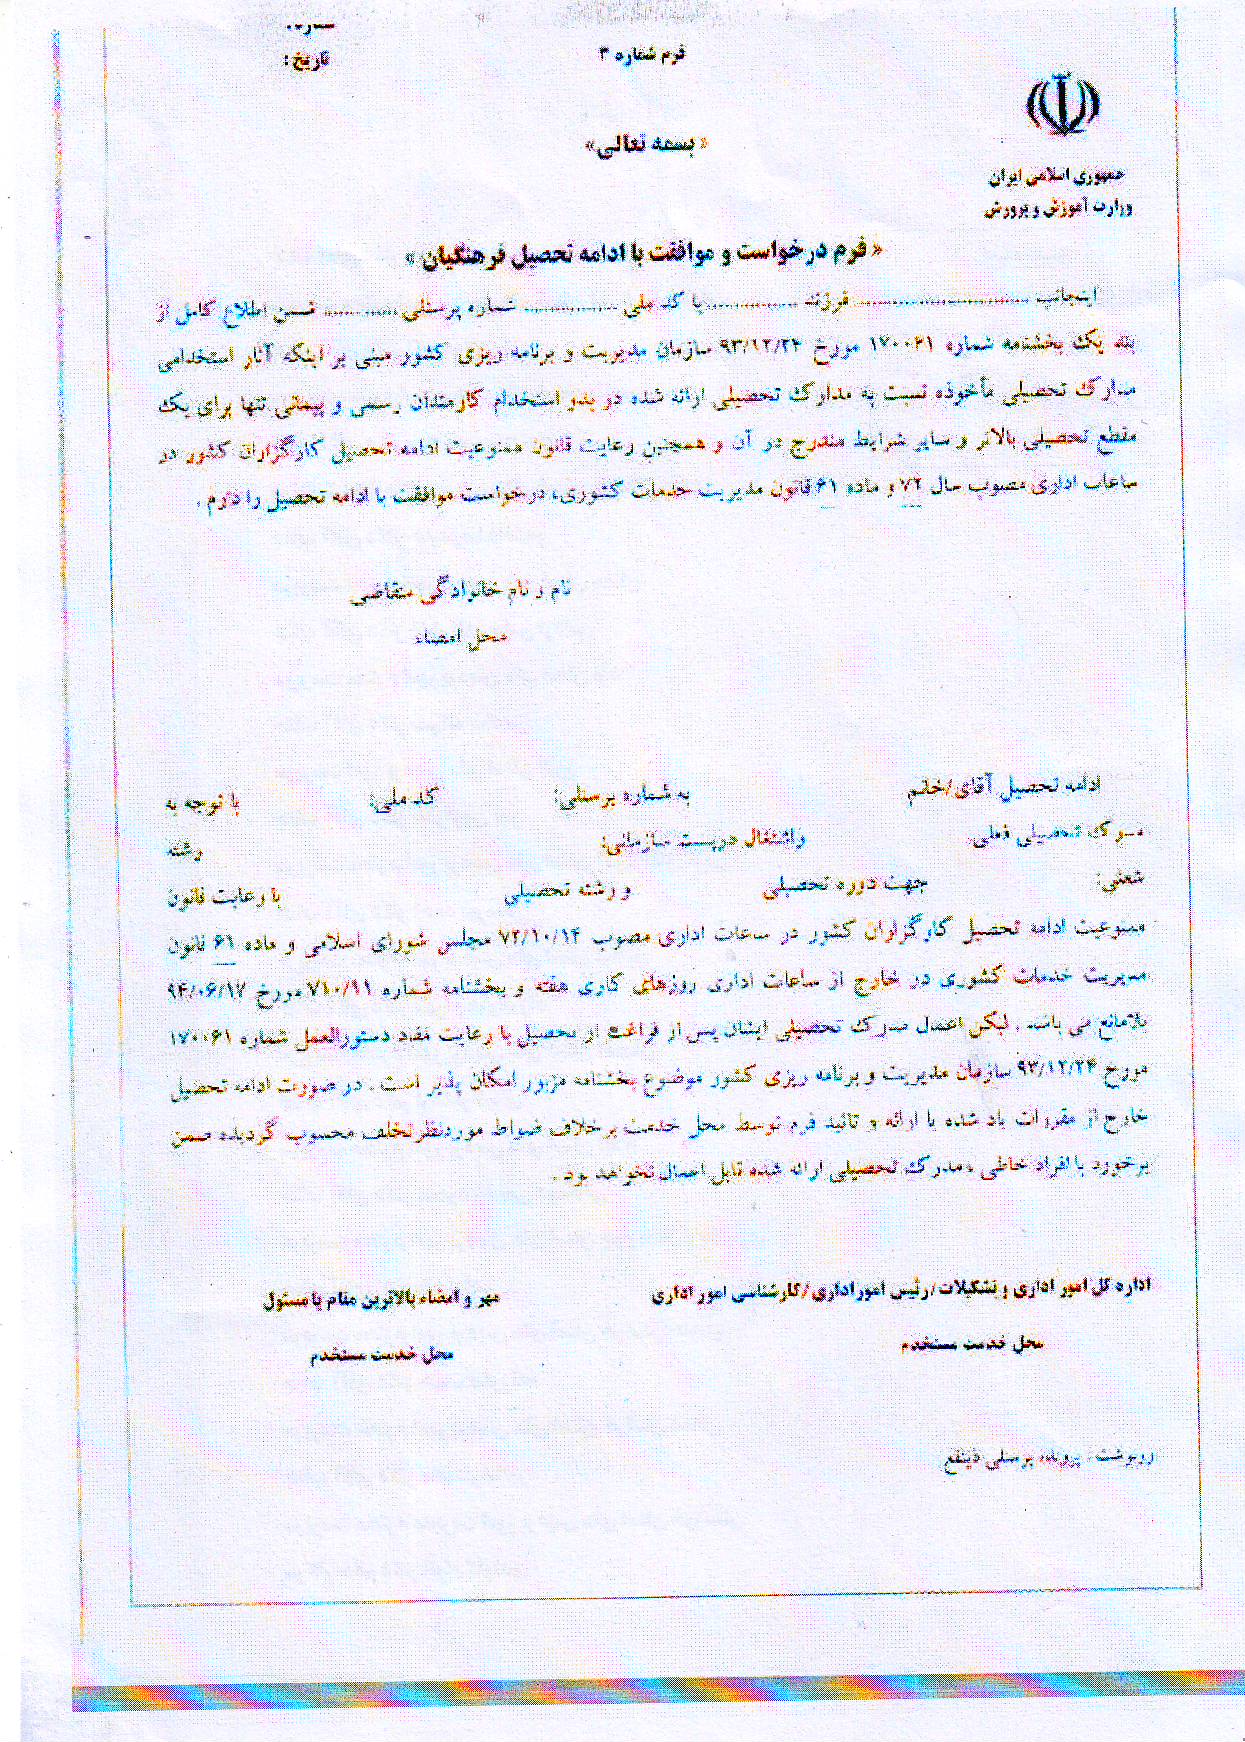 شماره:
تاریخ:
فرم شماره ۳
« بسمه تعالی»
جمهوری اسلامی ایران
وزارت آموزش و پرورش
« فرم درخواست و موافقت با ادامه تحصیل فرهنگیان »
اینجانب ............................ فرزند ............... با کد ملی ............... شماره پرسنلی ............ ضمن اطلاع کامل از
بند یک بخشنامه شماره ۱۷۰۰۶۱ مورخ ۹۳/۱۲/۲۴ سازمان مدیریت و برنامه ریزی کشور مبنی بر اینکه آثار استخدامی
مدارک تحصیلی مأخوذه نسبت به مدارک تحصیلی ارائه شده در بدو استخدام کارمندان رسمی و پیمانی تنها برای یک
مقطع تحصیلی بالاتر و سایر شرایط مندرج در آن و همچنین رعایت قانون ممنوعیت ادامه تحصیل کارگزاران کشور در
ساعات اداری مصوب سال ۷۲ و ماده ۶۱ قانون مدیریت خدمات کشوری، درخواست موافقت با ادامه تحصیل را دارم .
نام و نام خانوادگی متقاضی
محل امضاء
ادامه تحصیل آقای/خانم به شماره پرسنلی: کد ملی: با توجه به
مدرک تحصیلی فعلی واشتغال درپست سازمانی: رشته
شغلی: جهت دوره تحصیلی و رشته تحصیلی با رعایت قانون
ممنوعیت ادامه تحصیل کارگزاران کشور در ساعات اداری مصوب ۷۲/۱۰/۱۴ مجلس شورای اسلامی و ماده ۶۱ قانون
مدیریت خدمات کشوری در خارج از ساعات اداری روزهای کاری هفته و بخشنامه شماره ۷۱۰/۹۱ مورخ ۹۴/۰۶/۱۷
بلامانع می باشد . لیکن اعمال مدرک تحصیلی ایشان پس از فراغت از تحصیل با رعایت مفاد دستورالعمل شماره ۱۷۰۰۶۱
مورخ ۹۳/۱۲/۲۴ سازمان مدیریت و برنامه ریزی کشور موضوع بخشنامه مزبور امکان پذیر است . در صورت ادامه تحصیل
خارج از مقررات یاد شده با ارائه و تائید فرم توسط محل خدمت برخلاف ضوابط موردنظر تخلف محسوب گردیده ضمن
برخورد با افراد خاطی ، مدرک تحصیلی ارائه شده قابل اعمال نخواهد بود .
اداره کل امور اداری و تشکیلات/رئیس اموراداری/کارشناسی امور اداری
محل خدمت مستخدم
مهر و امضاء بالاترین مقام یا مسئول
محل خدمت مستخدم
رونوشت: پرونده پرسنلی ذینفع